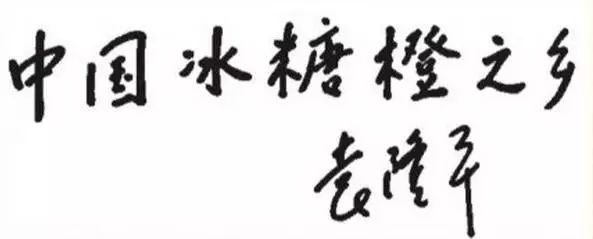 中国冰糖橙之乡
袁隆平